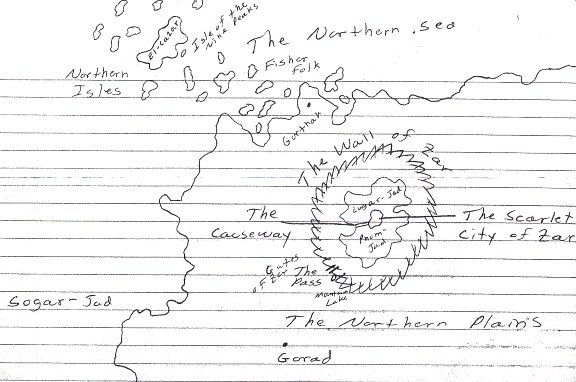 The Northern Sea
Isle of the
Nine Peaks
El-Lazar
Northern
Isles
Fisher
Folk
Garthak
The Wall of Zar
Lugar-Jad
The
Causeway
The Scarlet
City of Zar
Phom-
Jad
Gates
of Zar
The
Pass
Mountain
Lake
Sogar-Jad
The Northern Plains
Gorad